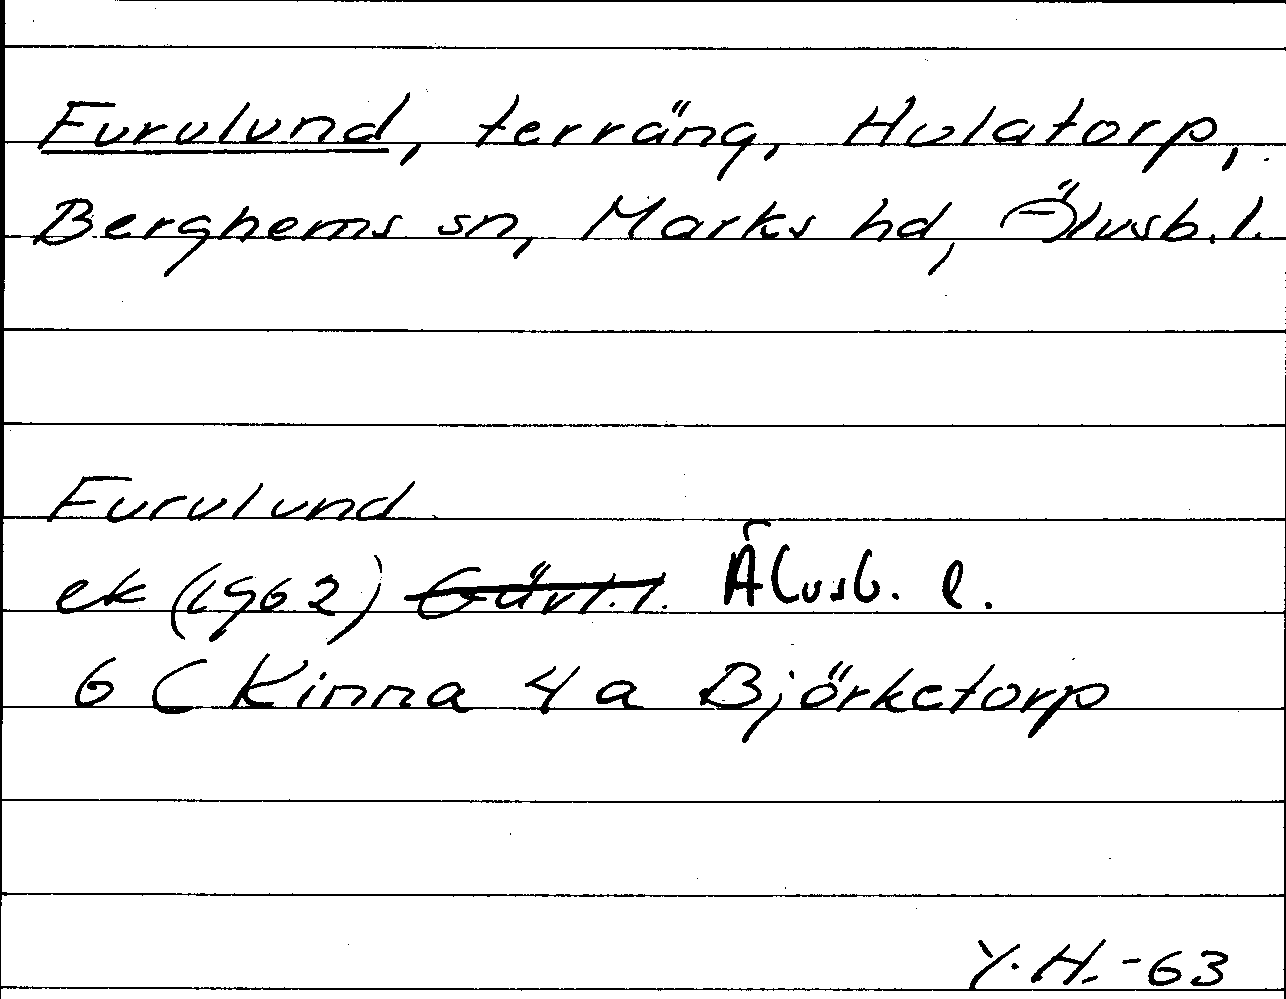 Furulund, terräng, Hulatorp,
Berghems sn, Marks hd, Älvsb. l.
Furulund
ek (1962) Gävl. l. Älvsb. l.
6 C Kinna 4 a Björketorp
Y.H. -63